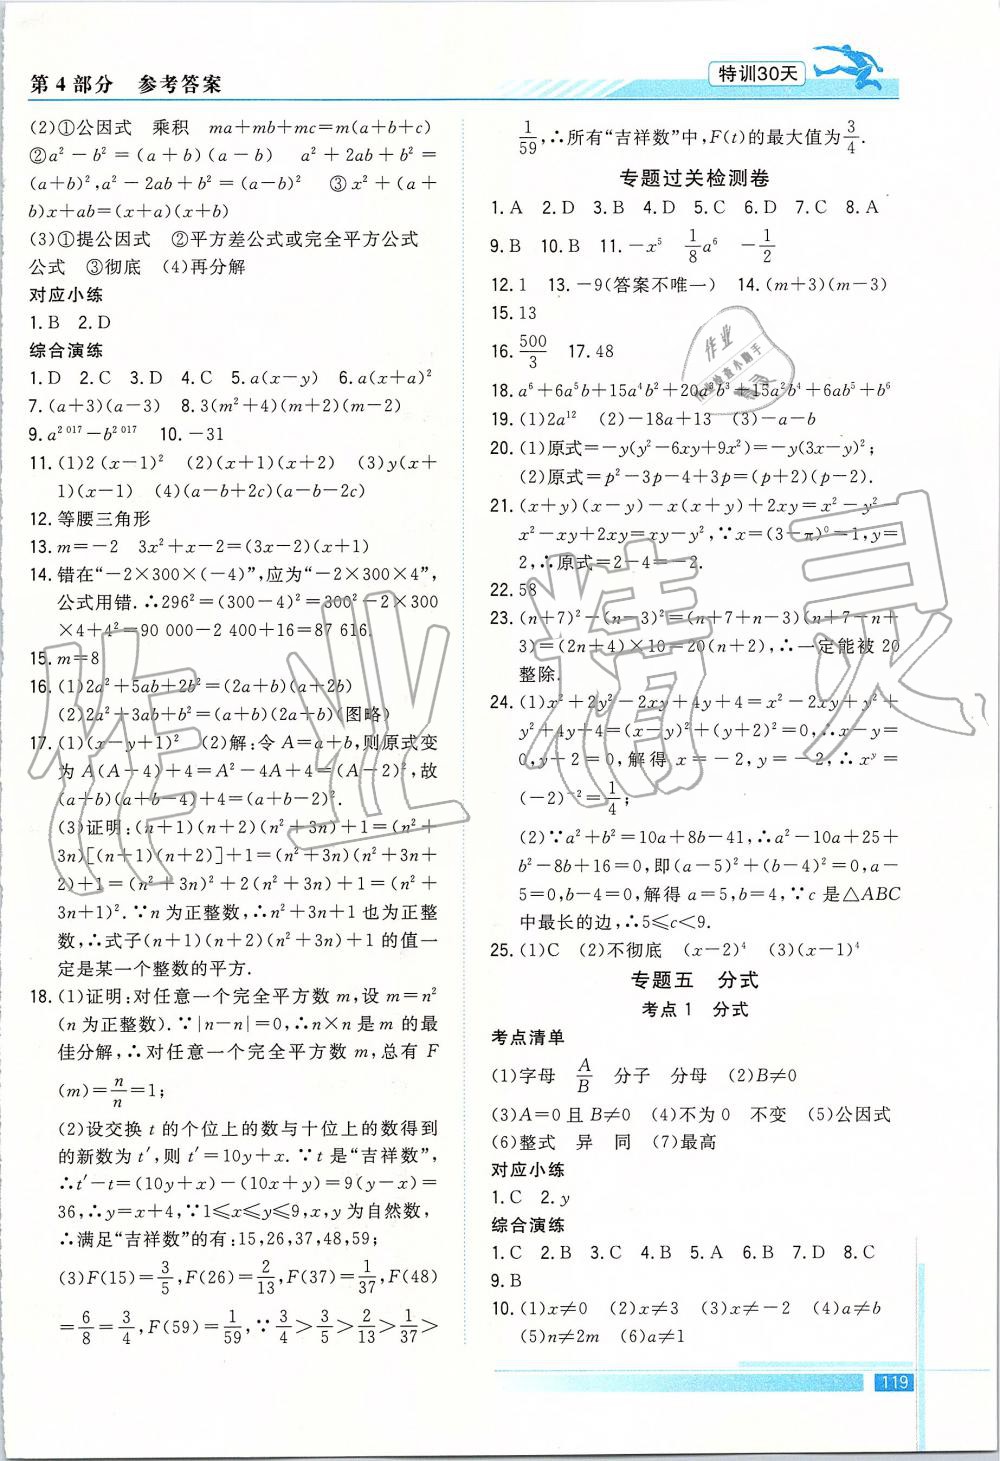 第4部分 参考答案
特训30天
(2)①公因式 乘积 ma+mb+mc=m(a+b+c)
②a²-b²=(a+b)(a-b) a²+2ab+b²=
(a+b)²,a²-2ab+b²=(a-b)² ③x²+(a+
b)x+ab=(x+a)(x+b)
(3)①提公因式 ②平方差公式或完全平方公式
公式 ③彻底 (4)再分解
对应小练
1.B 2.D
综合演练
1.D 2.C 3.D 4.C 5.a(x-y) 6.a(x+a)²
7.(a+3)(a-3) 8.3(m²+4)(m+2)(m-2)
9.a²⁰¹⁷-b²⁰¹⁷ 10.-31
11.(1)2(x-1)² (2)(x+1)(x+2) (3)y(x+
1)(x-1) (4)(a-b+2c)(a-b-2c)
12.等腰三角形
13.m=-2 3x²+x-2=(3x-2)(x+1)
14.错在“-2×300×(-4)”,应为“-2×300×4”,
公式用错.∴296²=(300-4)²=300²-2×300
×4+4²=90 000-2 400+16=87 616.
15.m=8
16.(1)2a²+5ab+2b²=(2a+b)(a+2b)
(2)2a²+3ab+b²=(a+b)(2a+b)(图略)
17.(1)(x-y+1)² (2)解:令A=a+b,则原式变
为A(A-4)+4=A²-4A+4=(A-2)²,故
(a+b)(a+b-4)+4=(a+b-2)².
(3)证明:(n+1)(n+2)(n²+3n)+1=(n²+
3n)[(n+1)(n+2)]+1=(n²+3n)(n²+3n+
2)+1=(n²+3n)²+2(n²+3n)+1=(n²+
3n+1)².∵n为正整数,∴n²+3n+1也为正整
数,∴式子(n+1)(n+2)(n²+3n)+1的值一
定是某一个整数的平方.
18.(1)证明:对任意一个完全平方数m,设m=n²
(n为正整数).∵|n-n|=0,∴n×n是m的最
佳分解,∴对任意一个完全平方数m,总有F
(m)=n/n=1;
(2)设交换t的个位上的数与十位上的数得到
的新数为t′,则t′=10y+x.∵t是“吉祥数”,
∴t′-t=(10y+x)-(10x+y)=9(y-x)=
36,∴y=x+4,∵1≤x≤y≤9,x,y为自然数,
∴满足“吉祥数”的有:15,26,37,48,59;
(3)F(15)=3/5,F(26)=2/13,F(37)=1/37,F(48)
=6/8=3/4,F(59)=1/59,∵3/4>3/5>2/13>1/37>
1/59,∴所有“吉祥数”中,F(t)的最大值为3/4.
专题过关检测卷
1.A 2.D 3.B 4.D 5.C 6.D 7.C 8.A
9.B 10.B 11.-x⁵ 1/8a⁶ -1/2
12.1 13.-9(答案不唯一) 14.(m+3)(m-3)
15.13
16.500/3 17.48
18.a⁶+6a⁵b+15a⁴b²+20a³b³+15a²b⁴+6ab⁵+b⁶
19.(1)2a¹² (2)-18a+13 (3)-a-b
20.(1)原式=-y(y²-6xy+9x²)=-y(3x-y)²;
(2)原式=p²-3p-4+3p=(p+2)(p-2).
21.(x+y)(x-y)-x(x+y)+2xy=x²-y²-
x²-xy+2xy=xy-y²,∵x=(3-π)⁰=1,y=
2,∴原式=2-4=-2.
22.58
23.(n+7)²-(n-3)²=(n+7+n-3)(n+7-n+
3)=(2n+4)×10=20(n+2),∴一定能被20
整除.
24.(1)x²+2y²-2xy+4y+4=x²-2xy+y²+
y²+4y+4=(x-y)²+(y+2)²=0,∴x-y=
0,y+2=0,解得x=-2,y=-2,∴xʸ=
(-2)⁻²=1/4;
(2)∵a²+b²=10a+8b-41,∴a²-10a+25+
b²-8b+16=0,即(a-5)²+(b-4)²=0,a-
5=0,b-4=0,解得a=5,b=4,∵c是△ABC
中最长的边,∴5≤c<9.
25.(1)C (2)不彻底 (x-2)⁴ (3)(x-1)⁴
专题五 分式
考点1 分式
考点清单
(1)字母 A/B 分子 分母 (2)B≠0
(3)A=0且B≠0 (4)不为0 不变 (5)公因式
(6)整式 异 同 (7)最高
对应小练
1.C 2.y
综合演练
1.C 2.B 3.C 4.C 5.A 6.B 7.D 8.C
9.B
10.(1)x≠0 (2)x≠3 (3)x≠-2 (4)a≠b
(5)n≠2m (6)a≠1
119
作业精灵